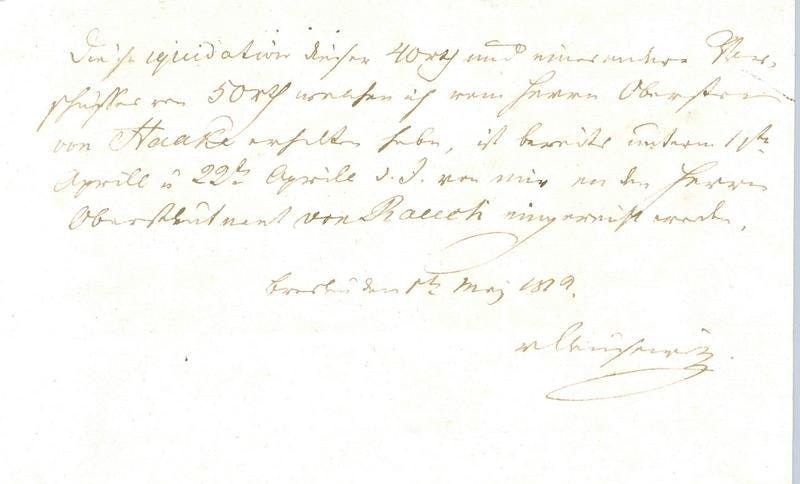 Die Liquidation dieser 40 rth und eines andern Vor-
schusses von 50 rth welchen ich vom Herrn Obersten
von Haake erhalten habe, ist bereits unterm 1ste
Aprill u 22te Aprill d. J. von mir an den Herrn
Oberstleutnant von Rauch eingereicht worden.
den 1te May
v Clausewitz.